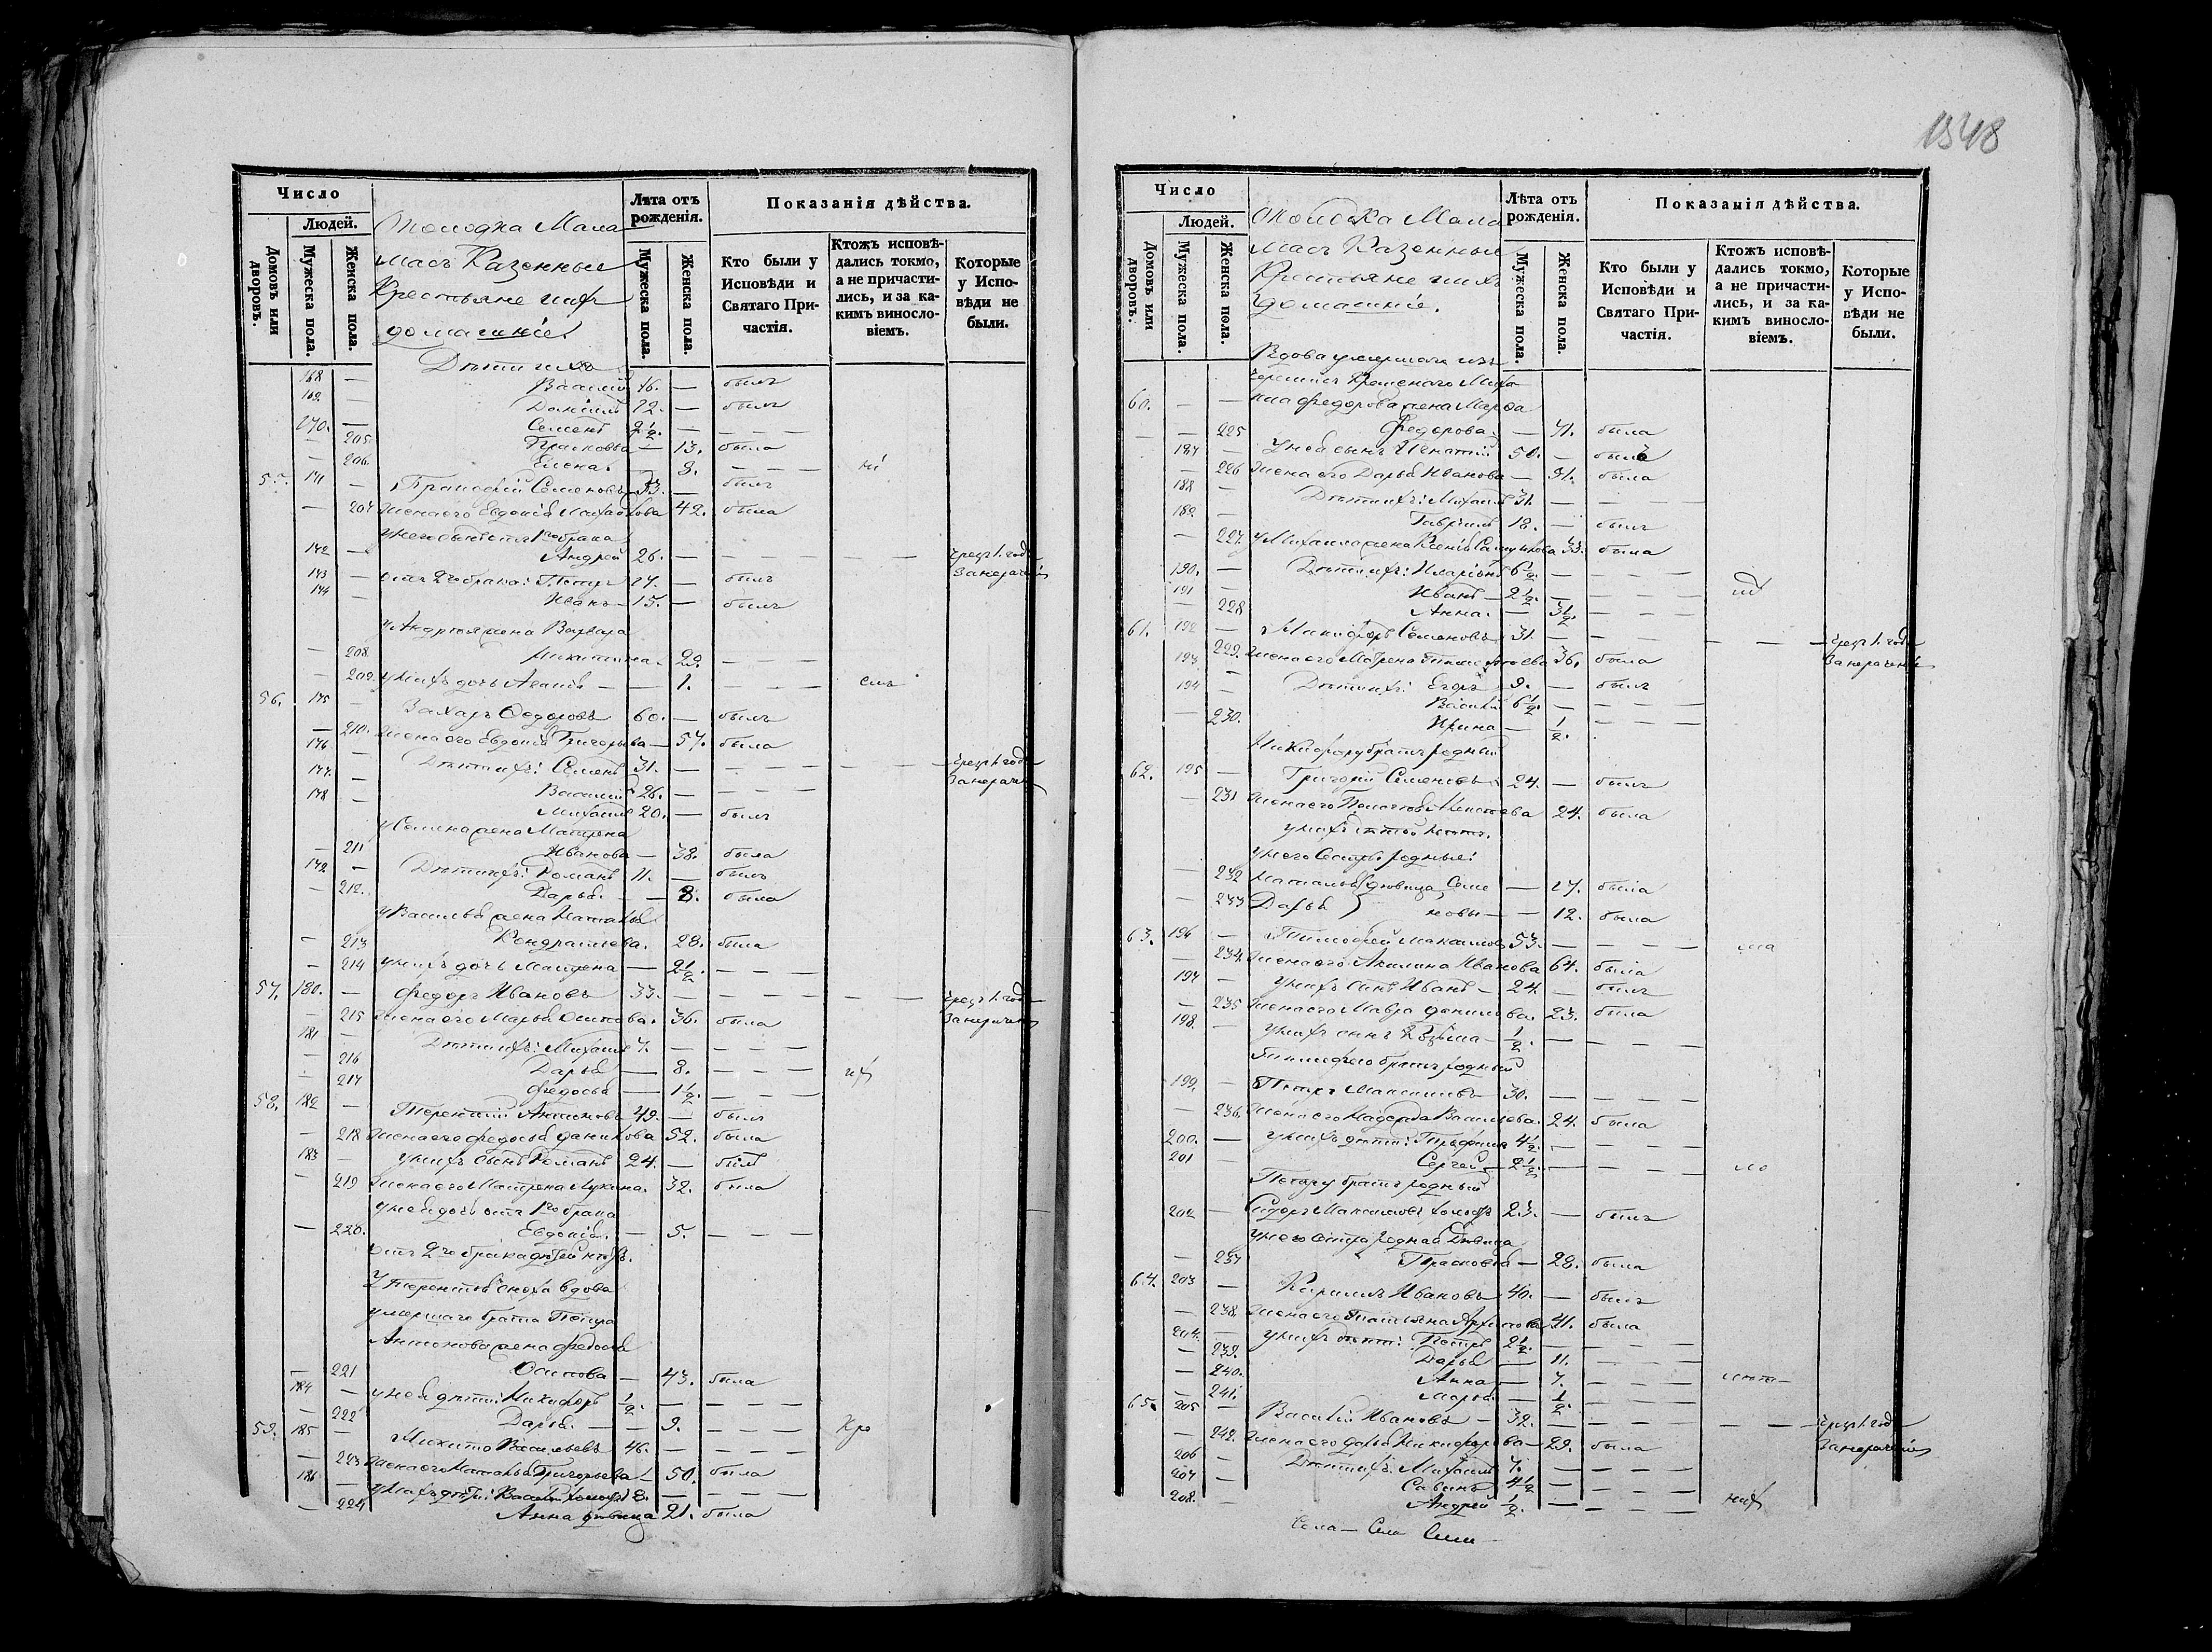 1548
Число
Людей.
Домовъ или дворовъ.
Мужеска пола.
Женска пола.
Лѣта отъ рожденія.
Мужеска пола.
Женска пола.
Показанія дѣйства.
Кто были у Исповѣди и Святаго Причастія.
Ктожъ исповѣдались токмо, а не причастились, и за какимъ винословіемъ.
Которые у Исповѣди не были.
Околодка Мала
масъ Казенные
Крестьяне и ихъ
домашніе.
Дѣти ихъ
168 — Василій 16. — былъ
169 — Даніилъ 12. — былъ
170. — Семенъ 2 1/2. — — — —
— 205 Прасковья — 13. была
— 206 Елена. — 8. — — —
55. 171 — Семеновъ 53. — былъ
— 207 Жена его Евдокія Михайлова 42. была
у него сынъ отъ 1го брака
172 — Андрей 26. — — — — — — чрезъ 1. годъ
173 — отъ 2го брака: Петръ 17. — былъ
174 — Иванъ — 15. — былъ
у Андрея жена Варвара
— 208 Никитина. 29. — — —
— 209 у нихъ дочь — — 1. — — —
56. 175 — Захаръ Ѳедоровъ 60. — былъ
— 210. Жена его Евдокія Григорьева — 57. была
176 — Дѣти ихъ: Семенъ 31. — — — — — — чрезъ 1. годъ
177. — Василій 26. — — — —
178 — Михаилъ 20. — былъ
у Семена жена Матрена
— 211 Иванова — 38. была
179 — Дѣти ихъ: Романъ 11. — былъ
— 212. Дарья. — — 8. была
у Василья жена Наталья
— 213 Кондратьева. 28. была
— 214 у нихъ дочь Матрена — 2 1/2. — — —
57. 180. — Федоръ Ивановъ 33. — — — — — — чрезъ 1. годъ
— 215 Жена его Марья Осипова. 36. была
181 — Дѣти ихъ: Михаилъ 7. — — — —
— 216 Дарья — 8. — — —
— 217 Федосья — 1 1/2. — — —
58. 182 — Терентій Антоновъ 49. — былъ
— 218 Жена его Федосья Данилова 52. была
183 — у нихъ сынъ Романъ 24. — былъ
— 219 Жена его Матрена Лукина. 32. была
у ней дочь отъ 1го брака
— 220. Евдокія. — 5. — — —
отъ 2го брака дѣтей нѣтъ.
У Терентья сноха вдова
умершаго брата Петра
Антонова жена Федосья
— 221 Осипова — 43. была
184 — у ней дѣти: Никифоръ 1/2. — — — —
— 222 Дарья. — — 9. — — —
59. 185 — Никита Васильевъ 46. — — — —
— 223 Жена его Наталья Григорьева — 50. была
186 — у нихъ дѣти: Василій 18. — — — —
— 224 Анна дѣвица 21. была
Число
Людей.
Домовъ или дворовъ.
Мужеска пола.
Женска пола.
Лѣта отъ рожденія.
Мужеска пола.
Женска пола.
Показанія дѣйства.
Кто были у Исповѣди и Святаго Причастія.
Ктожъ исповѣдались токмо, а не причастились, и за какимъ винословіемъ.
Которые у Исповѣди не были.
Околодка Мала
масъ Казенные
Крестьяне и ихъ
домашніе.
Вдова умершаго изъ
60. — — Федорова жена Марфа
— — 225 Федорова. — 71. была
187 — У ней сынъ Игнатій 50. — былъ
— 226 Жена его Дарья Иванова — 51. была
188 — Дѣти ихъ: Михаилъ 31. — — — —
189. — Гавріилъ 18. — былъ
— 227. у Михаила жена Ксенія 33. была
190. — Дѣти ихъ: Иларіонъ 6 1/2. — — — —
191 — Иванъ — 2 1/2. — — — —
— 228 Анна. — 3 1/2. — — —
61. 192 — Никифоръ Семеновъ 31. — — — — — чрезъ 1. годъ
— 229. Жена его Матрена 36. была
193 — Дѣти ихъ: Егоръ 9. — былъ
194 — Василій 6 1/2. — — — —
— 230. Ирина — 1/2. — — —
Никифору братъ родный
62. 195 — Григорій Семеновъ 24. — былъ
— 231 Жена его 24. была
у нихъ дѣтей нѣтъ.
У него сестры родныя:
— 232 Наталья дѣвица Семе — 17. была
— 233 Дарья новы — — 12. была
63. 196 — Тимофей Максимовъ 53. — — — —
— 234. Жена его Акилина Иванова 64. была
197 — у нихъ сынъ Иванъ — 24. — былъ
— 235 Жена его Мавра Данилова. 23. была
198. — у нихъ сынъ Козьма — 1/2. — — — —
Тимофею братъ родный
199. — Петръ Максимовъ 30. — — — —
— 236. Жена его Надежда Васильева. 24. была
200. — у нихъ дѣти: 4 1/2. — — — —
201 — Сергей 2 1/2. — — — —
Петру братъ родный
202 — Сидоръ Максимовъ холостъ 23. — былъ
у него сестра родная дѣвица
— 237 Прасковья — 28. была
64. 203 — Кириллъ Ивановъ 40. — былъ
— 238. Жена его Татьяна Архипова 41. была
204. — у нихъ дѣти: Петръ 2 1/2. — — — —
— 239. Дарья — 11. — — —
— 240. Анна — 7. — — —
— 241. Марья. — 1/2. — — —
65. 205 — Василій Ивановъ — 32. — — — — — чрезъ 1. годъ
— 242. Жена его Дарья Никифорова — 29. была
206 — Дѣти ихъ: Михаилъ 7. — — — —
207 — Савинъ 4 1/2 — — — —
208. — Андрей 1/2. — — — —